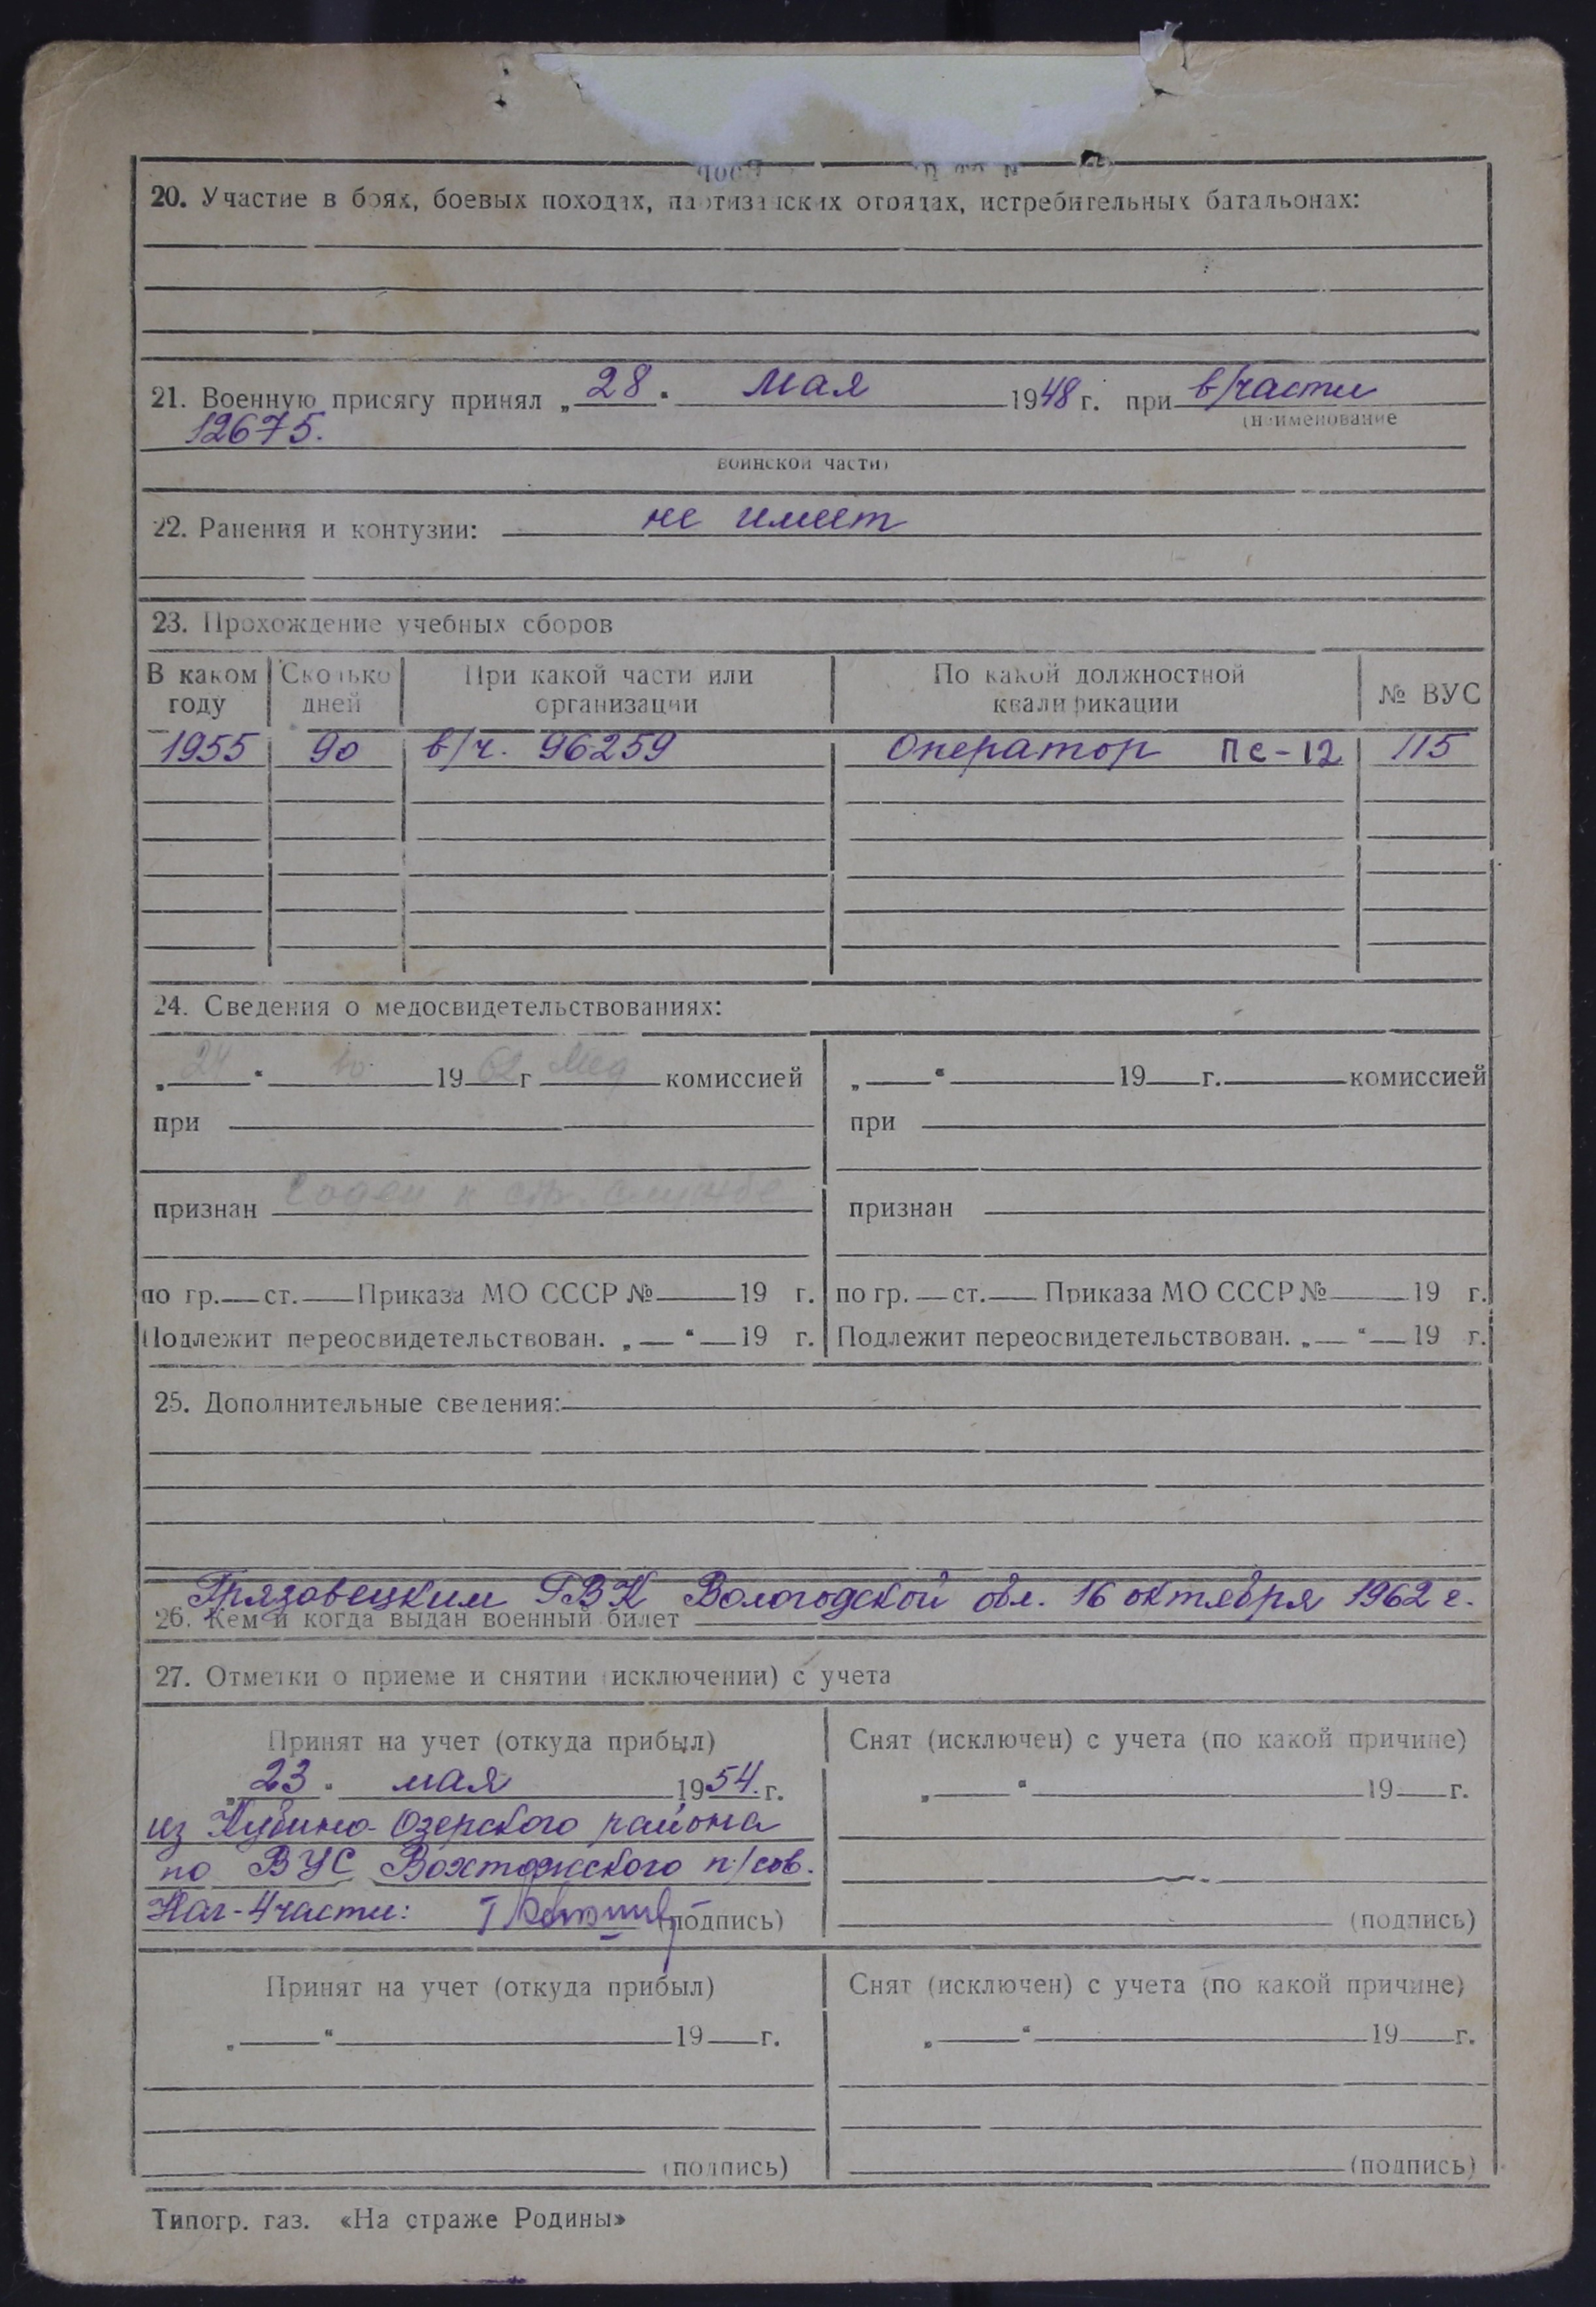 20. Участие в боях, боевых походах, партизанских отрядах, истребительных батальонах:
21. Военную присягу принял „28“ мая 1948 г. при в/части
(наименование
12675.
воинской части)
22. Ранения и контузии: не имеет
23. Прохождение учебных сборов
В каком году Сколько дней При какой части или организации По какой должностной квалификации № ВУС
1955 90 в/ч. 96259 Оператор ПС-12 115
24. Сведения о медосвидетельствованиях:
„24“ 10 1962 г Мед комиссией „ “ 19 г. комиссией
при при
признан годен к стр. службе признан
по гр. ст. Приказа МО СССР № 19 г. по гр. ст. Приказа МО СССР № 19 г.
Подлежит переосвидетельствован. „ “ 19 г. Подлежит переосвидетельствован. „ “ 19 г.
25. Дополнительные сведения:
Грязовецким ГВК Вологодской обл. 16 октября 1962 г.
26. Кем и когда выдан военный билет
27. Отметки о приеме и снятии (исключении) с учета
Принят на учет (откуда прибыл) Снят (исключен) с учета (по какой причине)
„23“ мая 1954 г. „ “ 19 г.
из Кубино-Озерского района
по ВУС Вохтожского п/сов.
Нач-4части: (подпись) (подпись)
Принят на учет (откуда прибыл) Снят (исключен) с учета (по какой причине)
„ “ 19 г. „ “ 19 г.
(подпись) (подпись)
Типогр. газ. «На страже Родины»